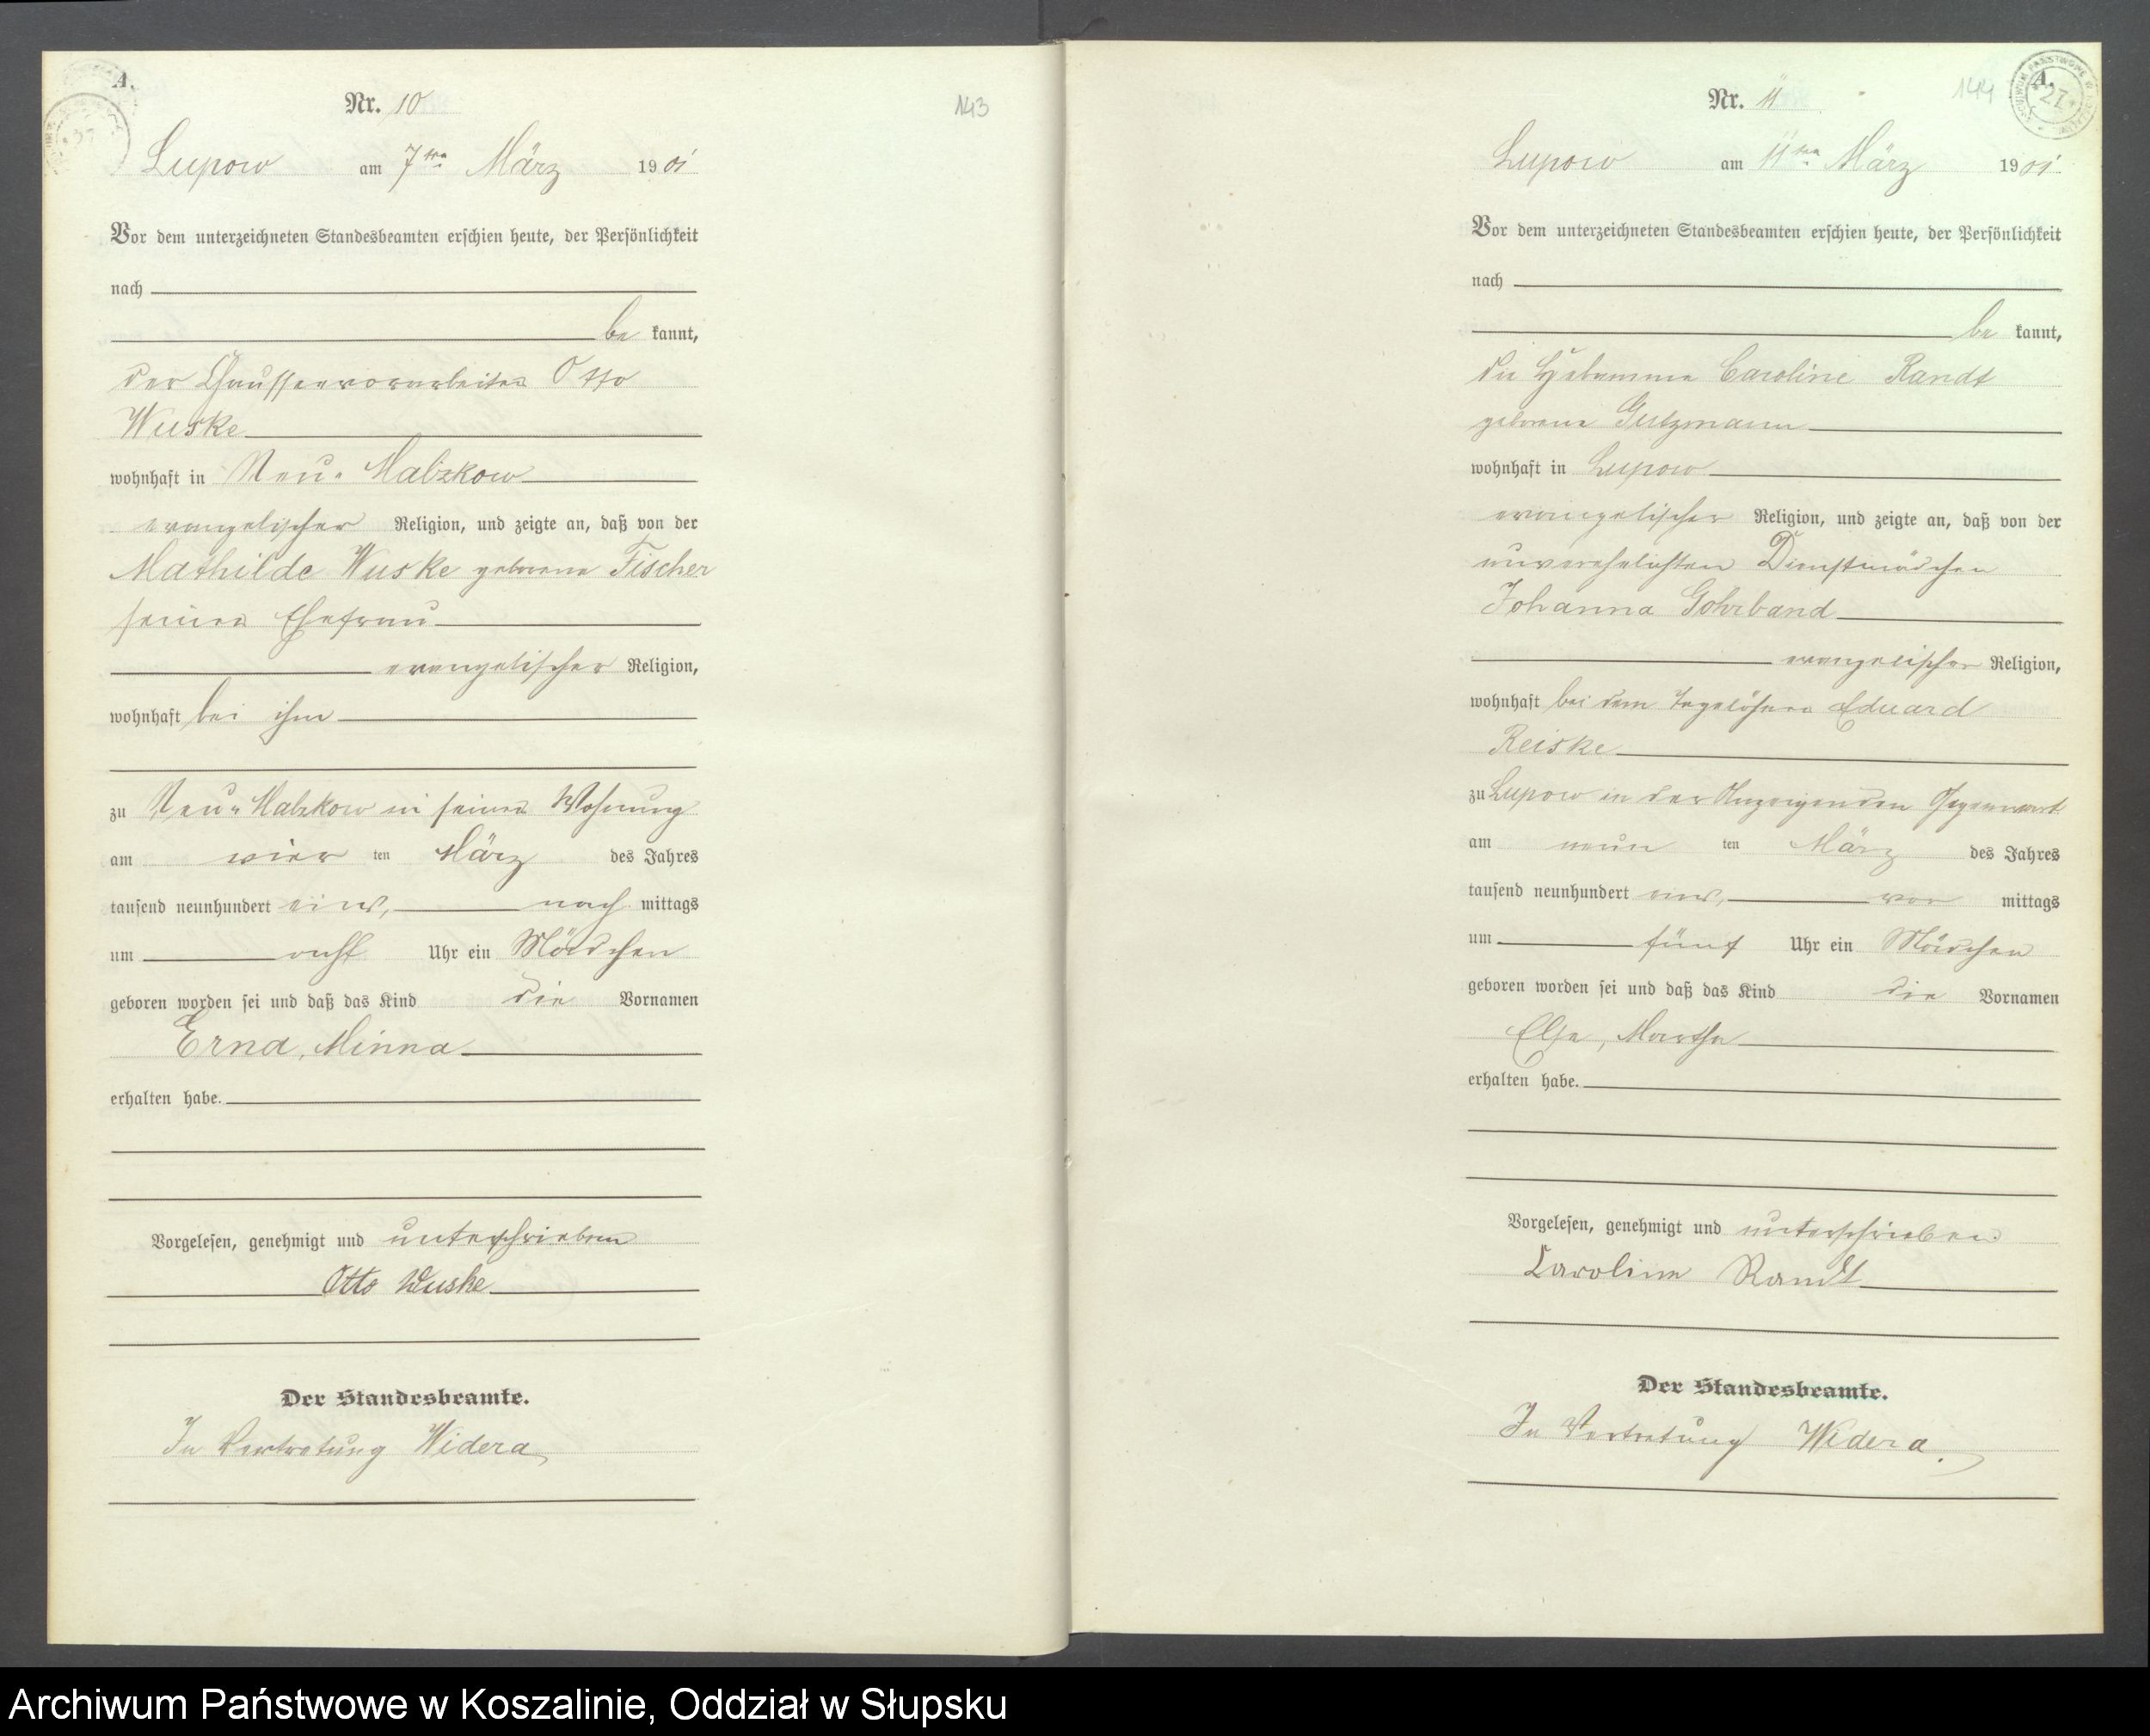 A.
Nr. 10
143
Lupow am 7ten März 1901
Vor dem unterzeichneten Standesbeamten erschien heute, der Persönlichkeit
nach
be kannt,
der Chausseevorarbeiter Otto
Wuske
wohnhaft in Neu-Malzkow
evangelischer Religion, und zeigte an, daß von der
Mathilde Wuske geborene Fischer
seiner Ehefrau
evangelischer Religion,
wohnhaft bei ihm
zu Neu-Malzkow in seiner Wohnung
am vier ten März des Jahres
tausend neunhundert eins, nach mittags
um acht Uhr ein Mädchen
geboren worden sei und daß das Kind die Vornamen
Erna, Minna
erhalten habe.
Vorgelesen, genehmigt und unterschrieben
Otto Wuske
Der Standesbeamte.
In Vertretung Widera
A.
Nr. 11
144
27
Lupow am 11ten März 1901
Vor dem unterzeichneten Standesbeamten erschien heute, der Persönlichkeit
nach
be kannt,
die Hebamme Caroline Randt
geborene Gutzmann
wohnhaft in Lupow
evangelischer Religion, und zeigte an, daß von der
unverehelichten Dienstmädchen
Johanna Gohrband
evangelischer Religion,
wohnhaft bei dem Tagelöhner Eduard
Reiske
zu Lupow in der Anzeigenden Gegenwart
am neun ten März des Jahres
tausend neunhundert eins, vor mittags
um fünf Uhr ein Mädchen
geboren worden sei und daß das Kind die Vornamen
Else, Martha
erhalten habe.
Vorgelesen, genehmigt und unterschrieben
Caroline Randt
Der Standesbeamte.
In Vertretung Widera.
Archiwum Państwowe w Koszalinie, Oddział w Słupsku